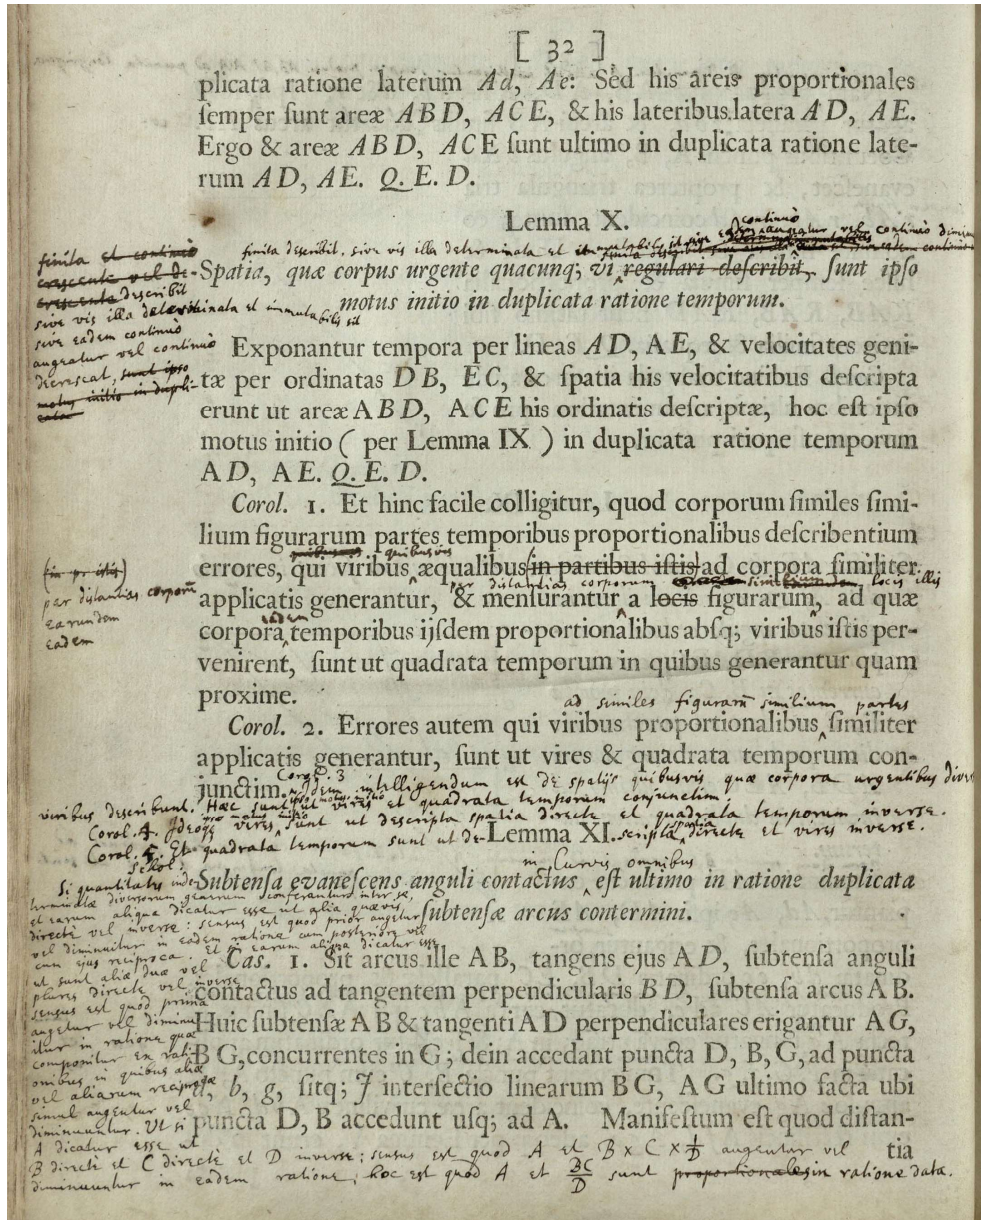 [ 32 ]
plicata ratione laterum Ad, Ae: Sed his areis proportionales
ſemper ſunt areæ ABD, ACE, & his lateribus latera AD, AE.
Ergo & areæ ABD, ACE ſunt ultimo in duplicata ratione late-
rum AD, AE. Q. E. D.
Lemma X.
continuò
eadem augeatur vel continuò diminu
finita describit, sive vis illa determinata et immutabilis sit sive
Spatia, quæ corpus urgente quacunq; vi regulari deſcribit, ſunt ipſo
motus initio in duplicata ratione temporum.
finita et continuò
crescente vel de-
crescente describit
sive vis illa determinata et immutabilis sit
sive eadem continuò
augeatur vel continuò
decrescat, sunt ipso
motus initio in dupli-
cata
Exponantur tempora per lineas AD, AE, & velocitates geni-
tæ per ordinatas DB, EC, & ſpatia his velocitatibus deſcripta
erunt ut areæ ABD, ACE his ordinatis deſcriptæ, hoc eſt ipſo
motus initio ( per Lemma IX ) in duplicata ratione temporum
AD, AE. Q. E. D.
Corol. 1. Et hinc facile colligitur, quod corporum ſimiles ſimi-
lium figurarum partes temporibus proportionalibus deſcribentium
quibusvis
errores, qui viribus æqualibus in partibus iſtis ad corpora ſimiliter
per distantias corporum locis illis
applicatis generantur, & menſurantur a locis figurarum, ad quæ
eadem
corpora temporibus ijſdem proportionalibus abſq; viribus iſtis per-
venirent, ſunt ut quadrata temporum in quibus generantur quam
proxime.
per distantias corporū
earundem
eadem
ad similes figurarū similium partes
Corol. 2. Errores autem qui viribus proportionalibus ſimiliter
applicatis generantur, ſunt ut vires & quadrata temporum con-
junctim.
Corol. 3 Idem intelligendum est de spatijs quibusvis quæ corpora urgentibus diver
viribus describunt. Hæc sunt ut vires et quadrata temporum conjunctim.
ipso motus initio
Corol. 4. Ideoqe vires sunt ut descripta spatia directe et quadrata temporum inverse.
Corol. 5. Et quadrata temporum sunt ut de-
scripta spatia directe et vires inverse.
Lemma XI.
in Curvis omnibus
Subtenſa evaneſcens anguli contactus eſt ultimo in ratione duplicata
ſubtenſæ arcus contermini.
Schol.
Si quantitates inde-
terminatæ diversorum generum conferantur inter se,
et earum aliqua dicatur esse ut alia quævis
directè vel inverse: sensus est quod prior augetur
vel diminuitur in eadem ratione cum posteriore vel
cum ejus reciproca. Et si earum aliqua dicatur esse
ut sunt aliæ duæ vel
plures directe vel inverse
sensus est quod prima
augetur vel diminu
itur in ratione quæ
componitur ex rati-
onibus in quibus aliæ
vel aliarum reciprocæ
simul augentur vel
diminuuntur. Ut si
A dicatur esse ut
B directè et C directè et D inverse; sensus est quod A et B × C × 1/D augentur vel
diminuuntur in eadem ratione, hoc est quod A et BC/D sunt proportionales in ratione data.
Cas. 1. Sit arcus ille AB, tangens ejus AD, ſubtenſa anguli
contactus ad tangentem perpendicularis BD, ſubtenſa arcus AB.
Huic ſubtenſæ AB & tangenti AD perpendiculares erigantur AG,
BG, concurrentes in G; dein accedant puncta D, B, G, ad puncta
d, b, g, ſitq; J interſectio linearum BG, AG ultimo facta ubi
puncta D, B accedunt uſq; ad A. Manifeſtum eſt quod diſtan-
tia